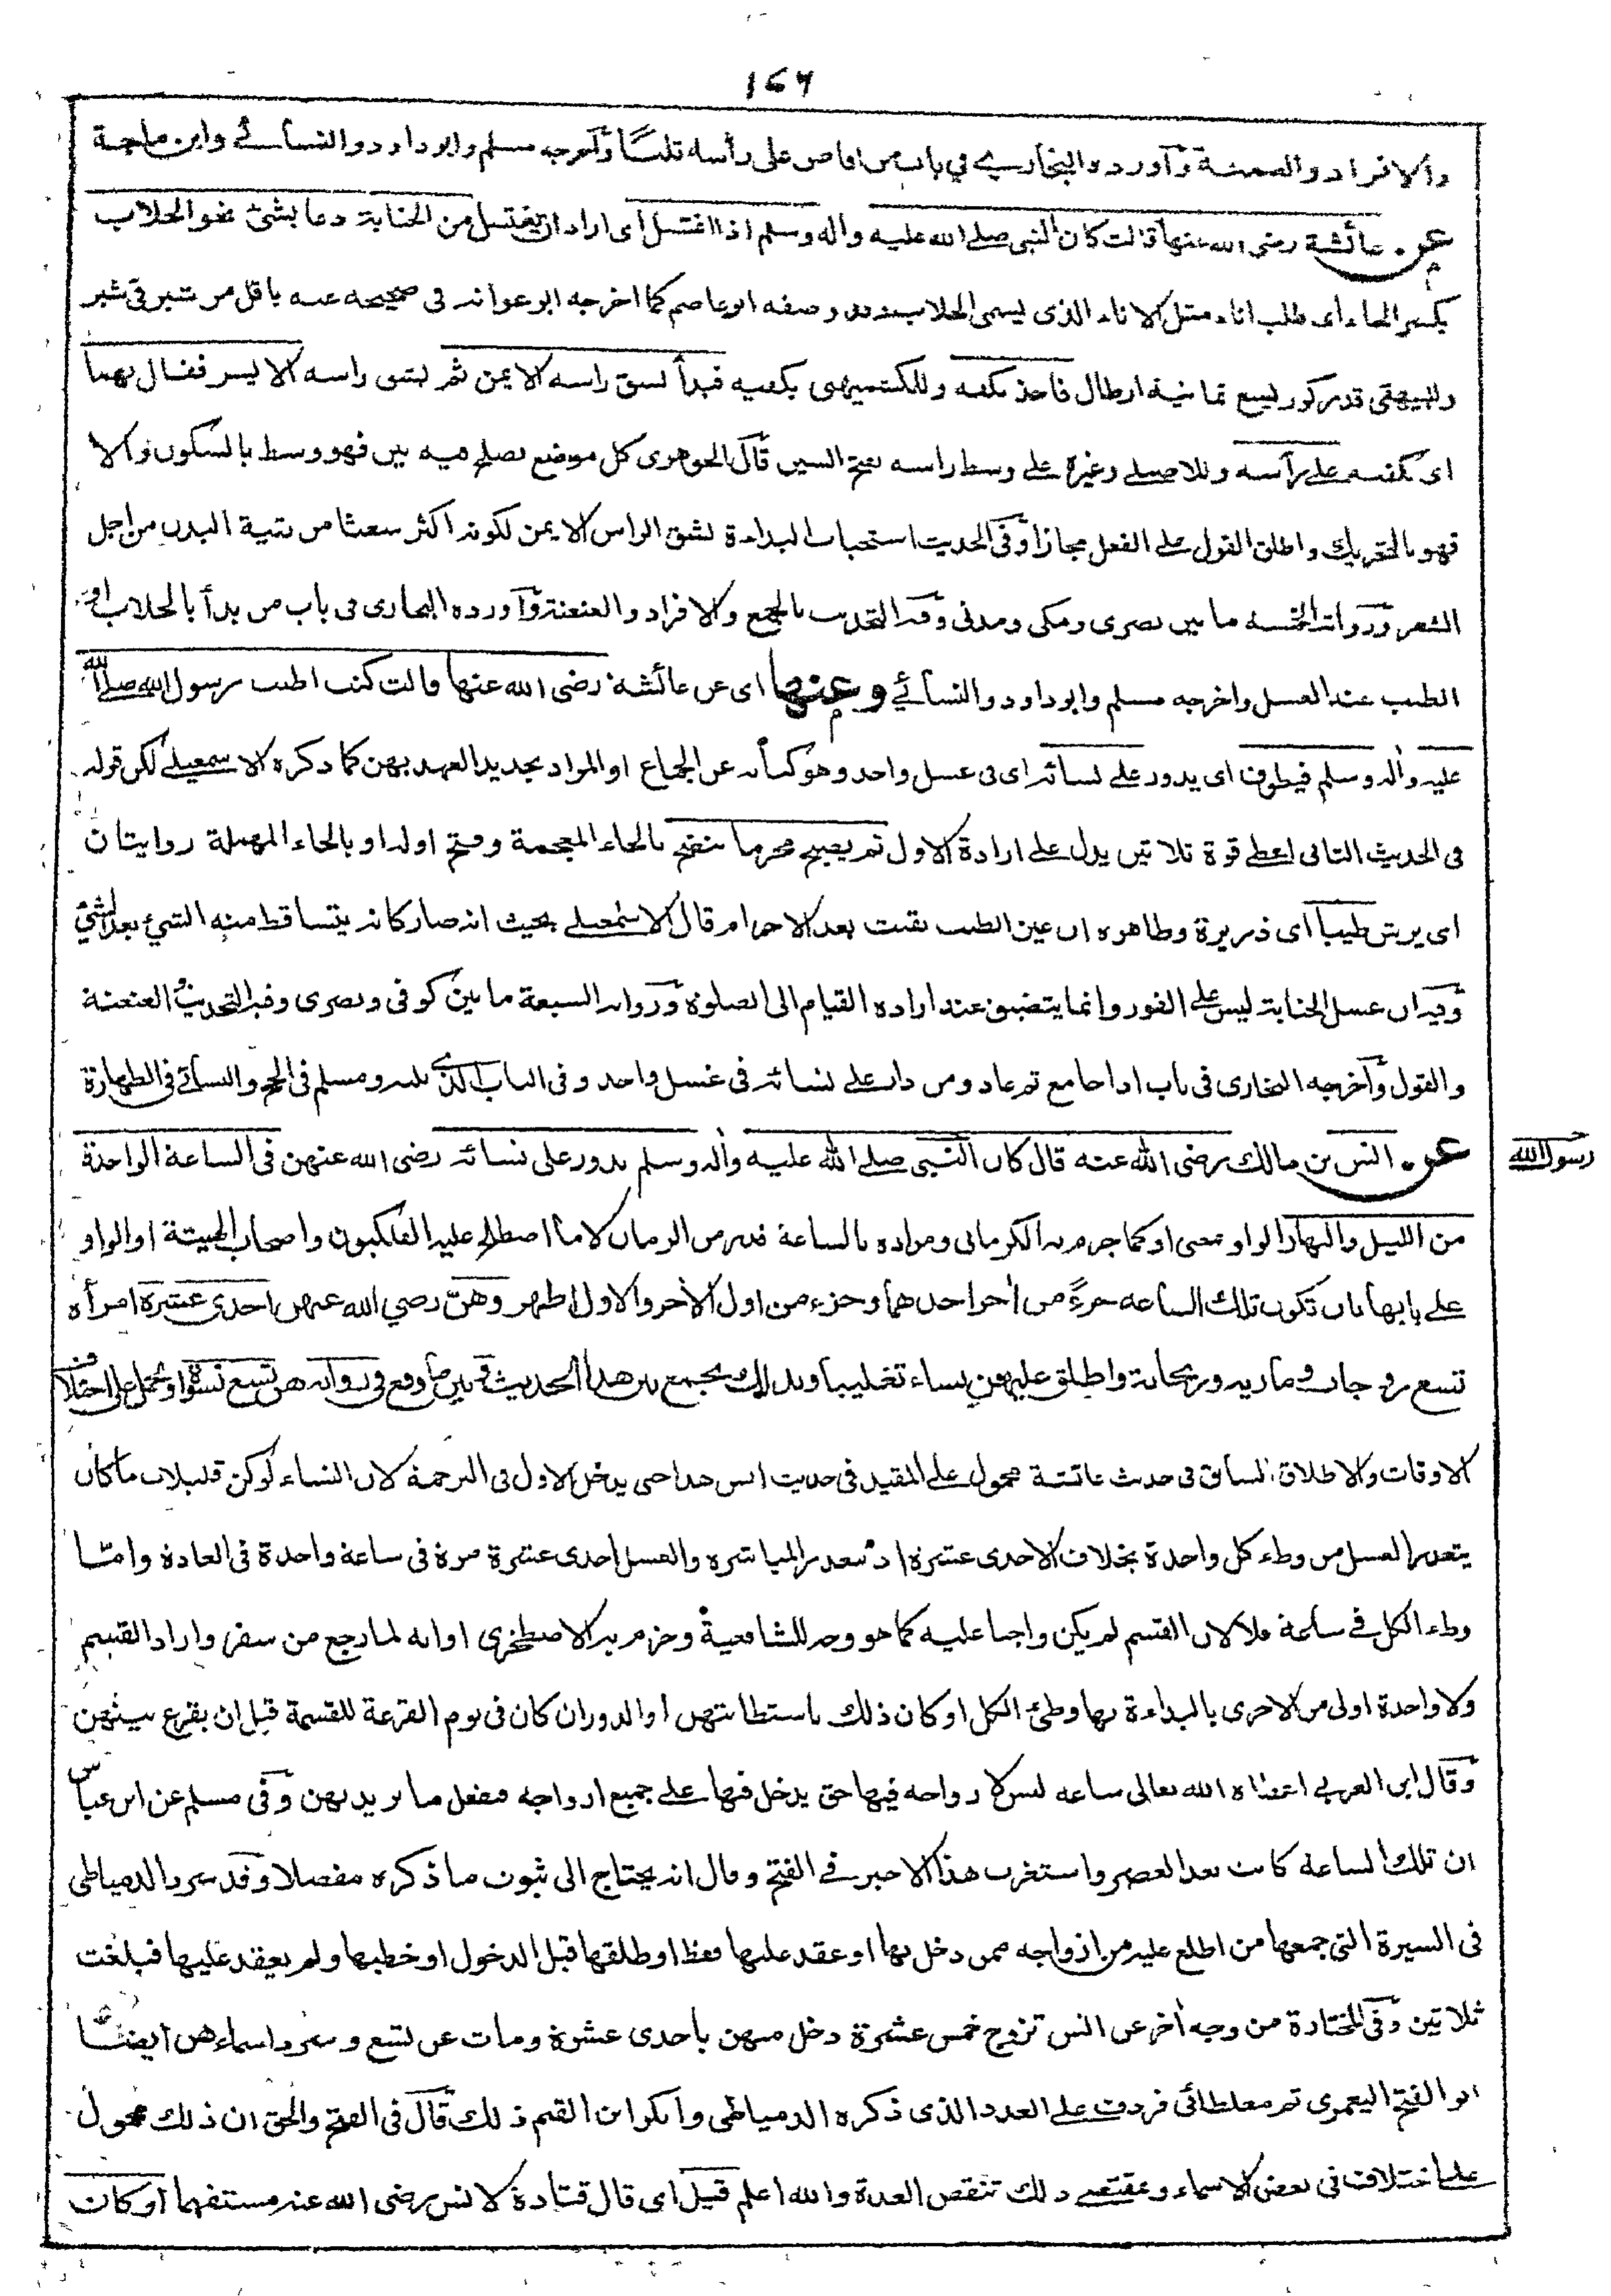 ١٤٧
والافراد والعنعنة وآورده البخاري في باب من افاض على رأسه ثلثا وآخرجه مسلم وابو داود والنسائے وابن ماجة
عن عائشة رضى الله عنها قالت كان النبى صلے الله عليه واله وسلم اذا اغتسل اى اراد ان يغتسل من الجنابة دعا بشئ نحو الحلاب
بكسر الحاء اى طلب اناء مثل الاناء الذى يسمى الحلاب وقد وصفه ابو عاصم كما اخرجه ابو عوانه فى صحيحه عنه باقل من شبر فى شبر
وللبيهقى قدر كوز يسع ثمانية ارطال فاخذ بكفه وللكشميهنى بكفيه فبدأ بشق راسه الايمن ثم بشق راسه الايسر فقال بهما
اى بكفيه على رآسه وللاصيلے وغيره علے وسط راسه بفتح السين قال الجوهرى كل موضع يصلح فيه بين فهو وسط بالسكون والا
فهو بالتحريك واطلق القول علے الفعل مجازا وفى الحديث استحباب البداءة بشق الراس الايمن لكونه اكثر شعثا من بقية البدن من اجل
الشعر ورواته الخمسة ما بين بصرى ومكى ومدنى وفيه التحديث بالجمع والافراد والعنعنة وآورده البخارى فى باب من بدأ بالحلاب او
الطيب عند الغسل واخرجه مسلم وابو داود والنسائے وعنها اى عن عائشة رضى الله عنها قالت كنت اطيب رسول الله صلے الله
عليه واله وسلم فيطوف اى يدور علے نسائه اى فى غسل واحد وهو كناية عن الجماع او المراد تجديد العهد بهن كما ذكره الاسمعيلے لكن قوله
فى الحديث الثانى اعطے قوة ثلاثين يدل علے ارادة الاول ثم يصبح محرما ينضخ بالخاء المعجمة وفتح اوله او بالحاء المهملة روايتان
اى يرش طيبا اى ذريرة وظاهره ان عين الطيب بقيت بعد الاحرام قال الاسمعيلے بحيث انه صار كانه يتساقط منه الشئ بعد الشئ
وفيه ان غسل الجنابة ليس علے الفور وانما يتضيق عند اراده القيام الى الصلوة ورواته السبعة ما بين كوفى وبصرى وفيه التحديث والعنعنة
والقول وآخرجه البخارى فى باب اذا جامع ثم عاد ومن دار علے نسائه فى غسل واحد وفى الباب الذى يليه ومسلم فى الحج والنسائے فى الطهارة
عن انس بن مالك رضى الله عنه قال كان النبى صلے الله عليه واله وسلم يدور على نسائه رضى الله عنهن فى الساعة الواحدة
رسول الله
من الليل والنهار الواو بمعنى او كما جزم به الكرمانى ومراده بالساعة قدر من الزمان لا ما اصطلح عليه الفلكيون واصحاب الهيئة او الواو
علے بابها بان تكون تلك الساعه جزءً من اخر احدهما وجزء من اول الآخر والاول اظهر وهن رضي الله عنهن احدى عشرة امرأه
تسع زوجات ومارية وريحانة واطلق عليهن نساء تغليبا وبذلك يجمع بين هذا الحديث وبين ما وقع فى روايه هن تسع نسوة او يحمل على اختلاف
الاوقات والاطلاق السابق فى حديث عائشة محمول علے المقيد فى حديث انس هذا حتى يدخل الاول فى الترجمة لان النساء لو كن قليلات ما كان
يتعذر الغسل من وطء كل واحدة بخلاف الاحدى عشرة اذ تتعذر المباشره والغسل احدى عشرة مرة فى ساعة واحدة فى العادة وامّا
وطء الكل فى ساعة فلا لان القسم لم يكن واجبا عليه كما هو وجه للشافعية وجزم به الاصطخرى او انه لما رجع من سفر واراد القسم
ولا واحدة اولى من الاخرى بالبداءة بها وطئ الكل او كان ذلك باستطابتهن او الدوران كان فى يوم القرعة للقسمة قبل ان يقرع بينهن
وقال ابن العربى اعطاه الله تعالى ساعه ليس لازواجه فيها حق يدخل فيها علے جميع ازواجه فيفعل ما يريد بهن وفى مسلم عن ابن عباس
ان تلك الساعة كانت بعد العصر واستغرب هذا الاخير فے الفتح وقال انه يحتاج الى ثبوت ما ذكره مفصلا وقد سرد الدمياطى
فى السيرة التى جمعها من اطلع عليه من ازواجه ممن دخل بها او عقد عليها فقط او طلقها قبل الدخول او خطبها ولم يعقد عليها فبلغت
ثلاثين وفى المختارة من وجه أخر عن انس تزوج خمس عشرة دخل منهن باحدى عشرة ومات عن تسع وسرد اسماءهن ايضا
ابو الفتح اليعمرى ثم مغلطائى فزدن علے العدد الذى ذكره الدمياطى وانكر ابن القيم ذلك قال فى الفتح والحق ان ذلك محمول
علے اختلاف فى بعض الاسماء وبمقتضے ذلك تنقص العدة والله اعلم قيل اى قال قتادة لانس رضى الله عنه مستفهما اوكان